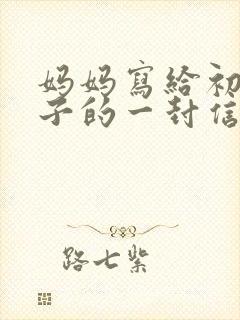 妈妈寫給初
子的一封信
路七紫